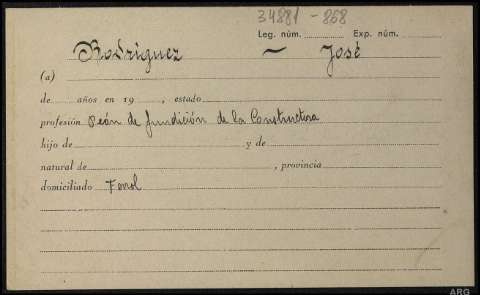 34881 - 868
Leg. núm. Exp. núm.
Rodríguez ~ José
(a)
de años en 19 , estado
profesión Peón de fundición de la Constructora
hijo de y de
natural de , provincia
domiciliado Ferrol
ARG